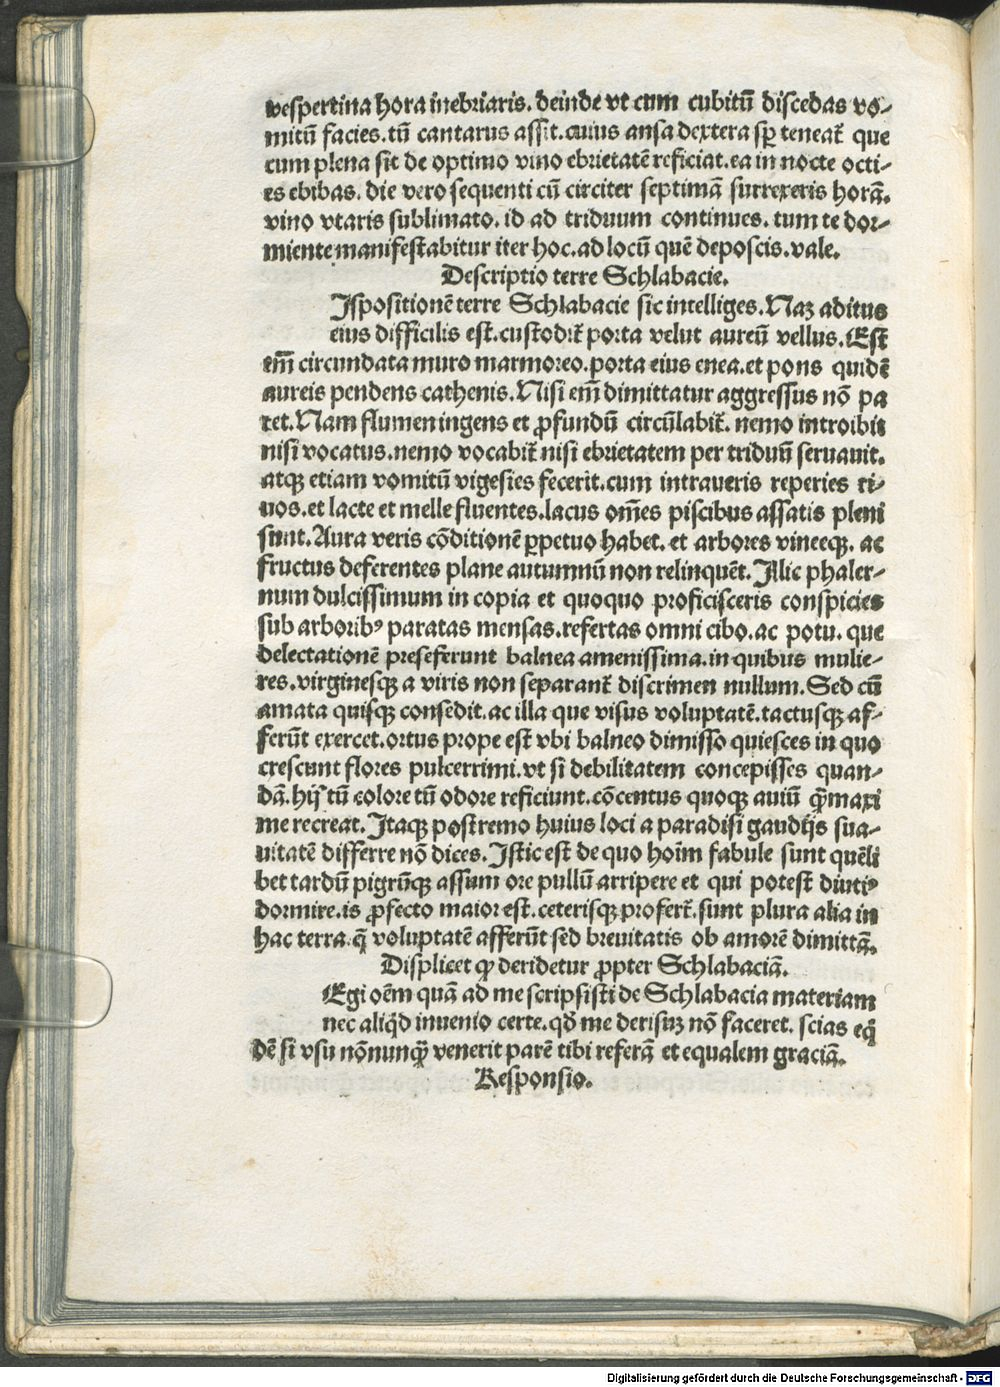 vespertina hora inebriaris. deinde vt cum cubitū discedas vo-
mitū facies. tū cantarus assit. cuius ansa dextera sꝑ teneat̃ que
cum plena sit de optimo vino ebrietatē reficiat. ea in nocte octi-
es ebibas. die vero sequenti cū circiter septimā surrexeris horā.
vino vtaris sublimato. id ad triduum continues. tum te dor-
miente manifestabitur iter hoc. ad locū quē deposcis. vale.
Descriptio terre Schlabacie.
Ispositionē terre Schlabacie sic intelliges. Naꝫ aditus
eius difficilis est. custodit̃ porta velut aureū vellus. Est
em̄ circundata muro marmoreo. porta eius enea. et pons quidē
aureis pendens cathenis. Nisi em̄ dimittatur aggressus nō pa
tet. Nam flumen ingens et ꝓfundū circūlabit̃. nemo introibit
nisi vocatus. nemo vocabit̃ nisi ebrietatem per triduū seruauit.
atqꝫ etiam vomitū vigesies fecerit. cum intraueris reperies ri-
uos. et lacte et melle fluentes. lacus om̄es piscibus assatis pleni
sunt. Aura veris cōditionē ꝑpetuo habet. et arbores vineeqꝫ. ac
fructus deferentes plane autumnū non relinquēt. Illic phaler-
num dulcissimum in copia et quoquo proficisceris conspicies
sub arboribꝰ paratas mensas. refertas omni cibo. ac potu. que
delectationē preseferunt balnea amenissima. in quibus mulie-
res. virginesqꝫ a viris non separant̃ discrimen nullum. Sed cū
amata quisqꝫ consedit. ac illa que visus voluptatē. tactusqꝫ af-
ferūt exercet. ortus prope est vbi balneo dimisso quiesces in quo
crescunt flores pulcerrimi. vt si debilitatem concepisses quan-
dā. hij tū colore tū odore reficiunt. cōcentus quoqꝫ auiū q̄maxi
me recreat. Itaqꝫ postremo huius loci a paradisi gaudijs sua-
uitatē differre nō dices. Istic est de quo hoīm fabule sunt quēli
bet tardū pigrūqꝫ assum ore pullū arripere et qui potest diutiꝰ
dormire. is ꝓfecto maior est. ceterisqꝫ profert̃. sunt plura alia in
hac terra. q̄ voluptatē afferūt sed breuitatis ob amorē dimittā.
Displicet ꝙ deridetur ꝓpter Schlabaciā.
Egi oēm quā ad me scripsisti de Schlabacia materiam
nec aliq̇d inuenio certe. qd̄ me derisuꝫ nō faceret. scias eq̇
dē si vsu nōnunq̄ venerit parē tibi referā et equalem graciā.
Responsio.
Digitalisierung gefördert durch die Deutsche Forschungsgemeinschaft - DFG